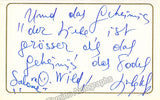 Und das Geheimnis
"der Liebe ist
grösser als das
Geheimnis des Todes"
Salome O. Wilde